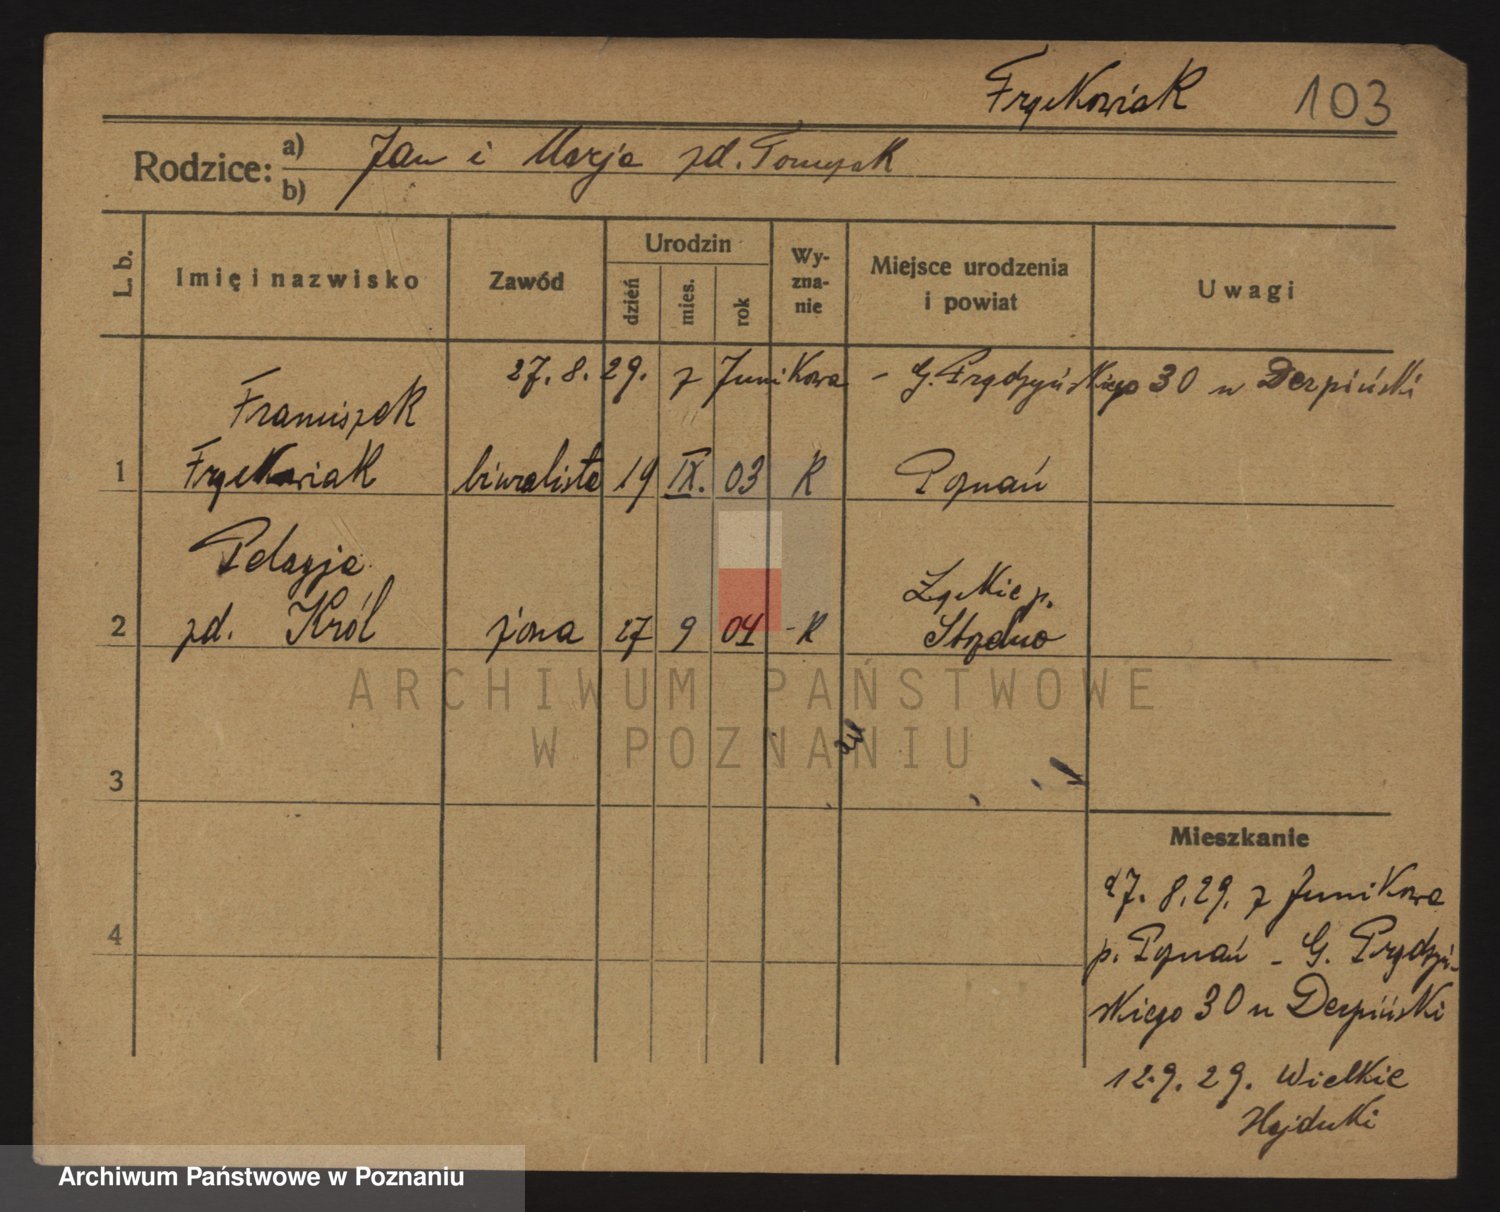 Frąckowiak 103
Rodzice: a) Jan i Marja zd. Tomczak
b)
L. b. Imię i nazwisko Zawód Urodzin dzień mies. rok Wyznanie Miejsce urodzenia i powiat Uwagi
27. 8. 29. z Junikowa – G. Prądzyńskiego 30 u Derpiński
Franciszek
1 Frąckowiak biuralista 19 IX. 03 R Poznań
Pelagja
2 zd. Król żona 27 9 04 - R Strzelno
ARCHIWUM PAŃSTWOWE
W POZNANIU
3
Mieszkanie
4
27. 8. 29. z Junikowa
p. Poznań – G. Prądzyń-
skiego 30 u Derpiński
12.9.29. Wielkie
Hajduki
Archiwum Państwowe w Poznaniu